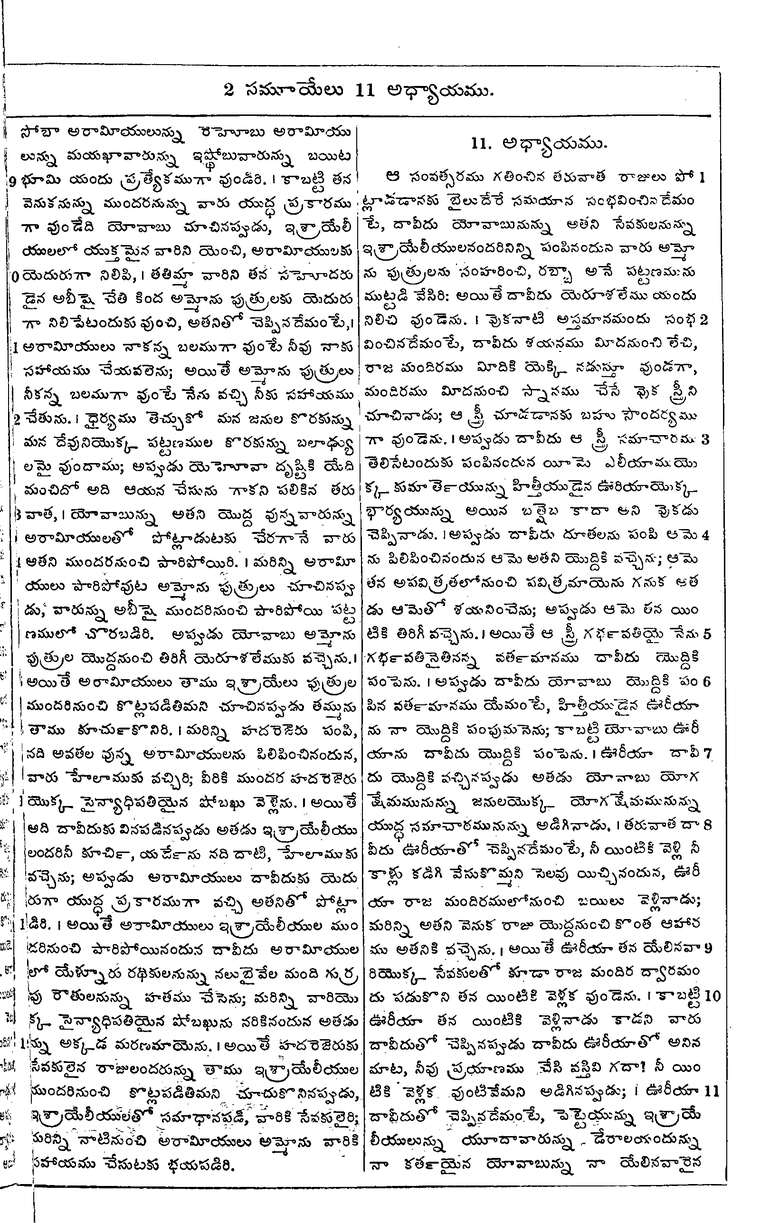 2 సమూయేలు 11 అధ్యాయము.
సోబా అరామీయులున్ను రెహోబు అరామీయు
లున్ను మయఖావారున్ను ఇష్టోబువారున్ను బయిట
9 భూమి యందు ప్రత్యేకముగా వుండిరి. । కాబట్టి తన
వెనుకనున్ను ముందరనున్ను వారు యుద్ధ ప్రకారము
గా వుండేది యోవాబు చూచినప్పుడు, ఇశ్రాయేలీ
యులలో యుక్తమైన వారిని యెంచి, అరామీయులకు
0 యెదురుగా నిలిపి, । తతిమ్మా వారిని తన సహోదరు
డైన అబీషై చేతి కింద అమ్మోను పుత్రులకు యెదురు
గా నిలిపేటందుకు వుంచి, అతనితో చెప్పినదేమంటే, ।
1 అరామీయులు నాకన్న బలముగా వుంటే నీవు నాకు
సహాయము చేయవలెను; అయితే అమ్మోను పుత్రులు
నీకన్న బలముగా వుంటే నేను వచ్చి నీకు సహాయము
2 చేతును. । ధైర్యము తెచ్చుకో మన జనుల కొరకున్ను
మన దేవునియొక్క పట్టణముల కొరకున్ను బలాఢ్యు
లమై వుందాము; అప్పుడు యెహోవా దృష్టికి యేది
మంచిదో అది ఆయన చేసును గాకని పలికిన తరు
3 వాత, । యోవాబున్ను అతని యొద్ద వున్నవారున్ను
అరామీయులతో పోట్లాడుటకు చేరగానే వారు
అతని ముందరనుంచి పారిపోయిరి. । మరిన్ని అరామీ
యులు పారిపోవుట అమ్మోను పుత్రులు చూచినప్పు
డు, వారున్ను అబీషై ముందరినుంచి పారిపోయి పట్ట
ణములో చొరబడిరి. అప్పుడు యోవాబు అమ్మోను
పుత్రుల యొద్దనుంచి తిరిగీ యెరూశలేముకు వచ్చెను. ।
అయితే అరామీయులు తాము ఇశ్రాయేలు పుత్రుల
ముందరినుంచి కొట్లపడితిమని చూచినప్పుడు తమ్మును
తాము కూర్చుకొనిరి. । మరిన్ని హదరెజెరు పంపి,
నది అవతల వున్న అరామీయులను పిలిపించినందున,
వారు హేలాముకు వచ్చిరి; వీరికి ముందర హదరెజెరు
యొక్క సైన్యాధిపతియైన షోబఖు వెళ్లెను. । అయితే
అది దావీదుకు వినపడినప్పుడు అతడు ఇశ్రాయేలీయు
లందరినీ కూర్చి, యర్దేను నది దాటి, హేలాముకు
వచ్చెను; అప్పుడు అరామీయులు దావీదుకు యెదు
రుగా యుద్ధ ప్రకారముగా వచ్చి అతనితో పోట్లా
డిరి. । అయితే అరామీయులు ఇశ్రాయేలీయుల ముం
దరినుంచి పారిపోయినందున దావీదు అరామీయుల
లో యేళ్నూరు రథికులనున్ను నలుభైవేల మంది గుర్ర
పు రౌతులనున్ను హతము చేసెను; మరిన్ని వారియొ
క్క సైన్యాధిపతియైన షోబఖును నరికినందున అతడు
న్ను అక్కడ మరణమాయెను. । అయితే హదరెజెరుకు
సేవకులైన రాజులందరున్ను తాము ఇశ్రాయేలీయుల
ముందరినుంచి కొట్లపడితిమని చూచుకొనినప్పుడు,
ఇశ్రాయేలీయులతో సమాధానపడి, వారికి సేవకులైరి;
మరిన్ని నాటినుంచి అరామీయులు అమ్మోను వారికి
సహాయము చేసుటకు భయపడిరి.
11. అధ్యాయము.
ఆ సంవత్సరము గతించిన తరువాత రాజులు పో 1
ట్లాడడానకు బైలుదేరే సమయాన సంభవించినదేమం
టే, దావీదు యోవాబునున్ను అతని సేవకులనున్ను
ఇశ్రాయేలీయులనందరినిన్ని పంపినందున వారు అమ్మో
ను పుత్రులను సంహరించి, రబ్బా అనే పట్టణమును
ముట్టడి వేసిరి: అయితే దావీదు యెరూశలేము యందు
నిలిచి వుండెను. । వొకనాటి అస్తమానమందు సంభ 2
వించినదేమంటే, దావీదు శయనము మీదనుంచి లేచి,
రాజ మందిరము మీదికి యెక్కి నడుస్తూ వుండగా,
మందిరము మీదనుంచి స్నానము చేసే వొక స్త్రీని
చూచినాడు; ఆ స్త్రీ చూడడానకు బహు సౌందర్యము
గా వుండెను. । అప్పుడు దావీదు ఆ స్త్రీ సమాచారము 3
తెలిసేటందుకు పంపినందున యీమె ఎలీయాముయొ
క్క కుమార్తెయున్ను హిత్తీయుడైన ఊరియాయొక్క
భార్యయున్ను అయిన బత్షెబ కాదా అని వొకడు
చెప్పినాడు. । అప్పుడు దావీదు దూతలను పంపి ఆమె 4
ను పిలిపించినందున ఆమె అతని యొద్దికి వచ్చెను; ఆమె
తన అపవిత్రతలోనుంచి పవిత్రమాయెను గనుక అత
డు ఆమెతో శయనించెను; అప్పుడు ఆమె తన యిం
టికి తిరిగీ వచ్చెను. । అయితే ఆ స్త్రీ గర్భవతియై నేను 5
గర్భవతినైతినన్న వర్తమానము దావీదు యొద్దికి
పంపెను. । అప్పుడు దావీదు యోవాబు యొద్దికి పం 6
పిన వర్తమానము యేమంటే, హిత్తీయుడైన ఊరీయా
ను నా యొద్దికి పంపుమనెను; కాబట్టి యోవాబు ఊరీ
యాను దావీదు యొద్దికి పంపెను. । ఊరీయా దావీ 7
దు యొద్దికి వచ్చినప్పుడు అతడు యోవాబు యోగ
క్షేమమునున్ను జనులయొక్క యోగక్షేమమునున్ను
యుద్ధ సమాచారమునున్ను అడిగినాడు. । తరువాత దా 8
వీదు ఊరీయాతో చెప్పినదేమంటే, నీ యింటికి వెళ్లి నీ
కాళ్లు కడిగి వేసుకొమ్మని సెలవు యిచ్చినందున, ఊరీ
యా రాజ మందిరములోనుంచి బయిలు వెళ్లినాడు;
మరిన్ని అతని వెనుక రాజు యొద్దనుంచి కొంత ఆహార
ము అతనికి వచ్చెను. । అయితే ఊరీయా తన యేలినవా 9
రియొక్క సేవకులతో కూడా రాజ మందిర ద్వారమం
దు పడుకొని తన యింటికి వెళ్లక వుండెను. । కాబట్టి 10
ఊరీయా తన యింటికి వెళ్లినాడు కాడని వారు
దావీదుతో చెప్పినప్పుడు దావీదు ఊరీయాతో అనిన
మాట, నీవు ప్రయాణము చేసి వస్తివి గదా! నీ యిం
టికి వెళ్లక వుంటివేమని అడిగినప్పుడు; । ఊరీయా 11
దావీదుతో చెప్పినదేమంటే, పెట్టెయున్ను ఇశ్రాయే
లీయులున్ను యూదావారున్ను డేరాలయందున్ను
నా కర్తయైన యోవాబున్ను నా యేలినవారైన